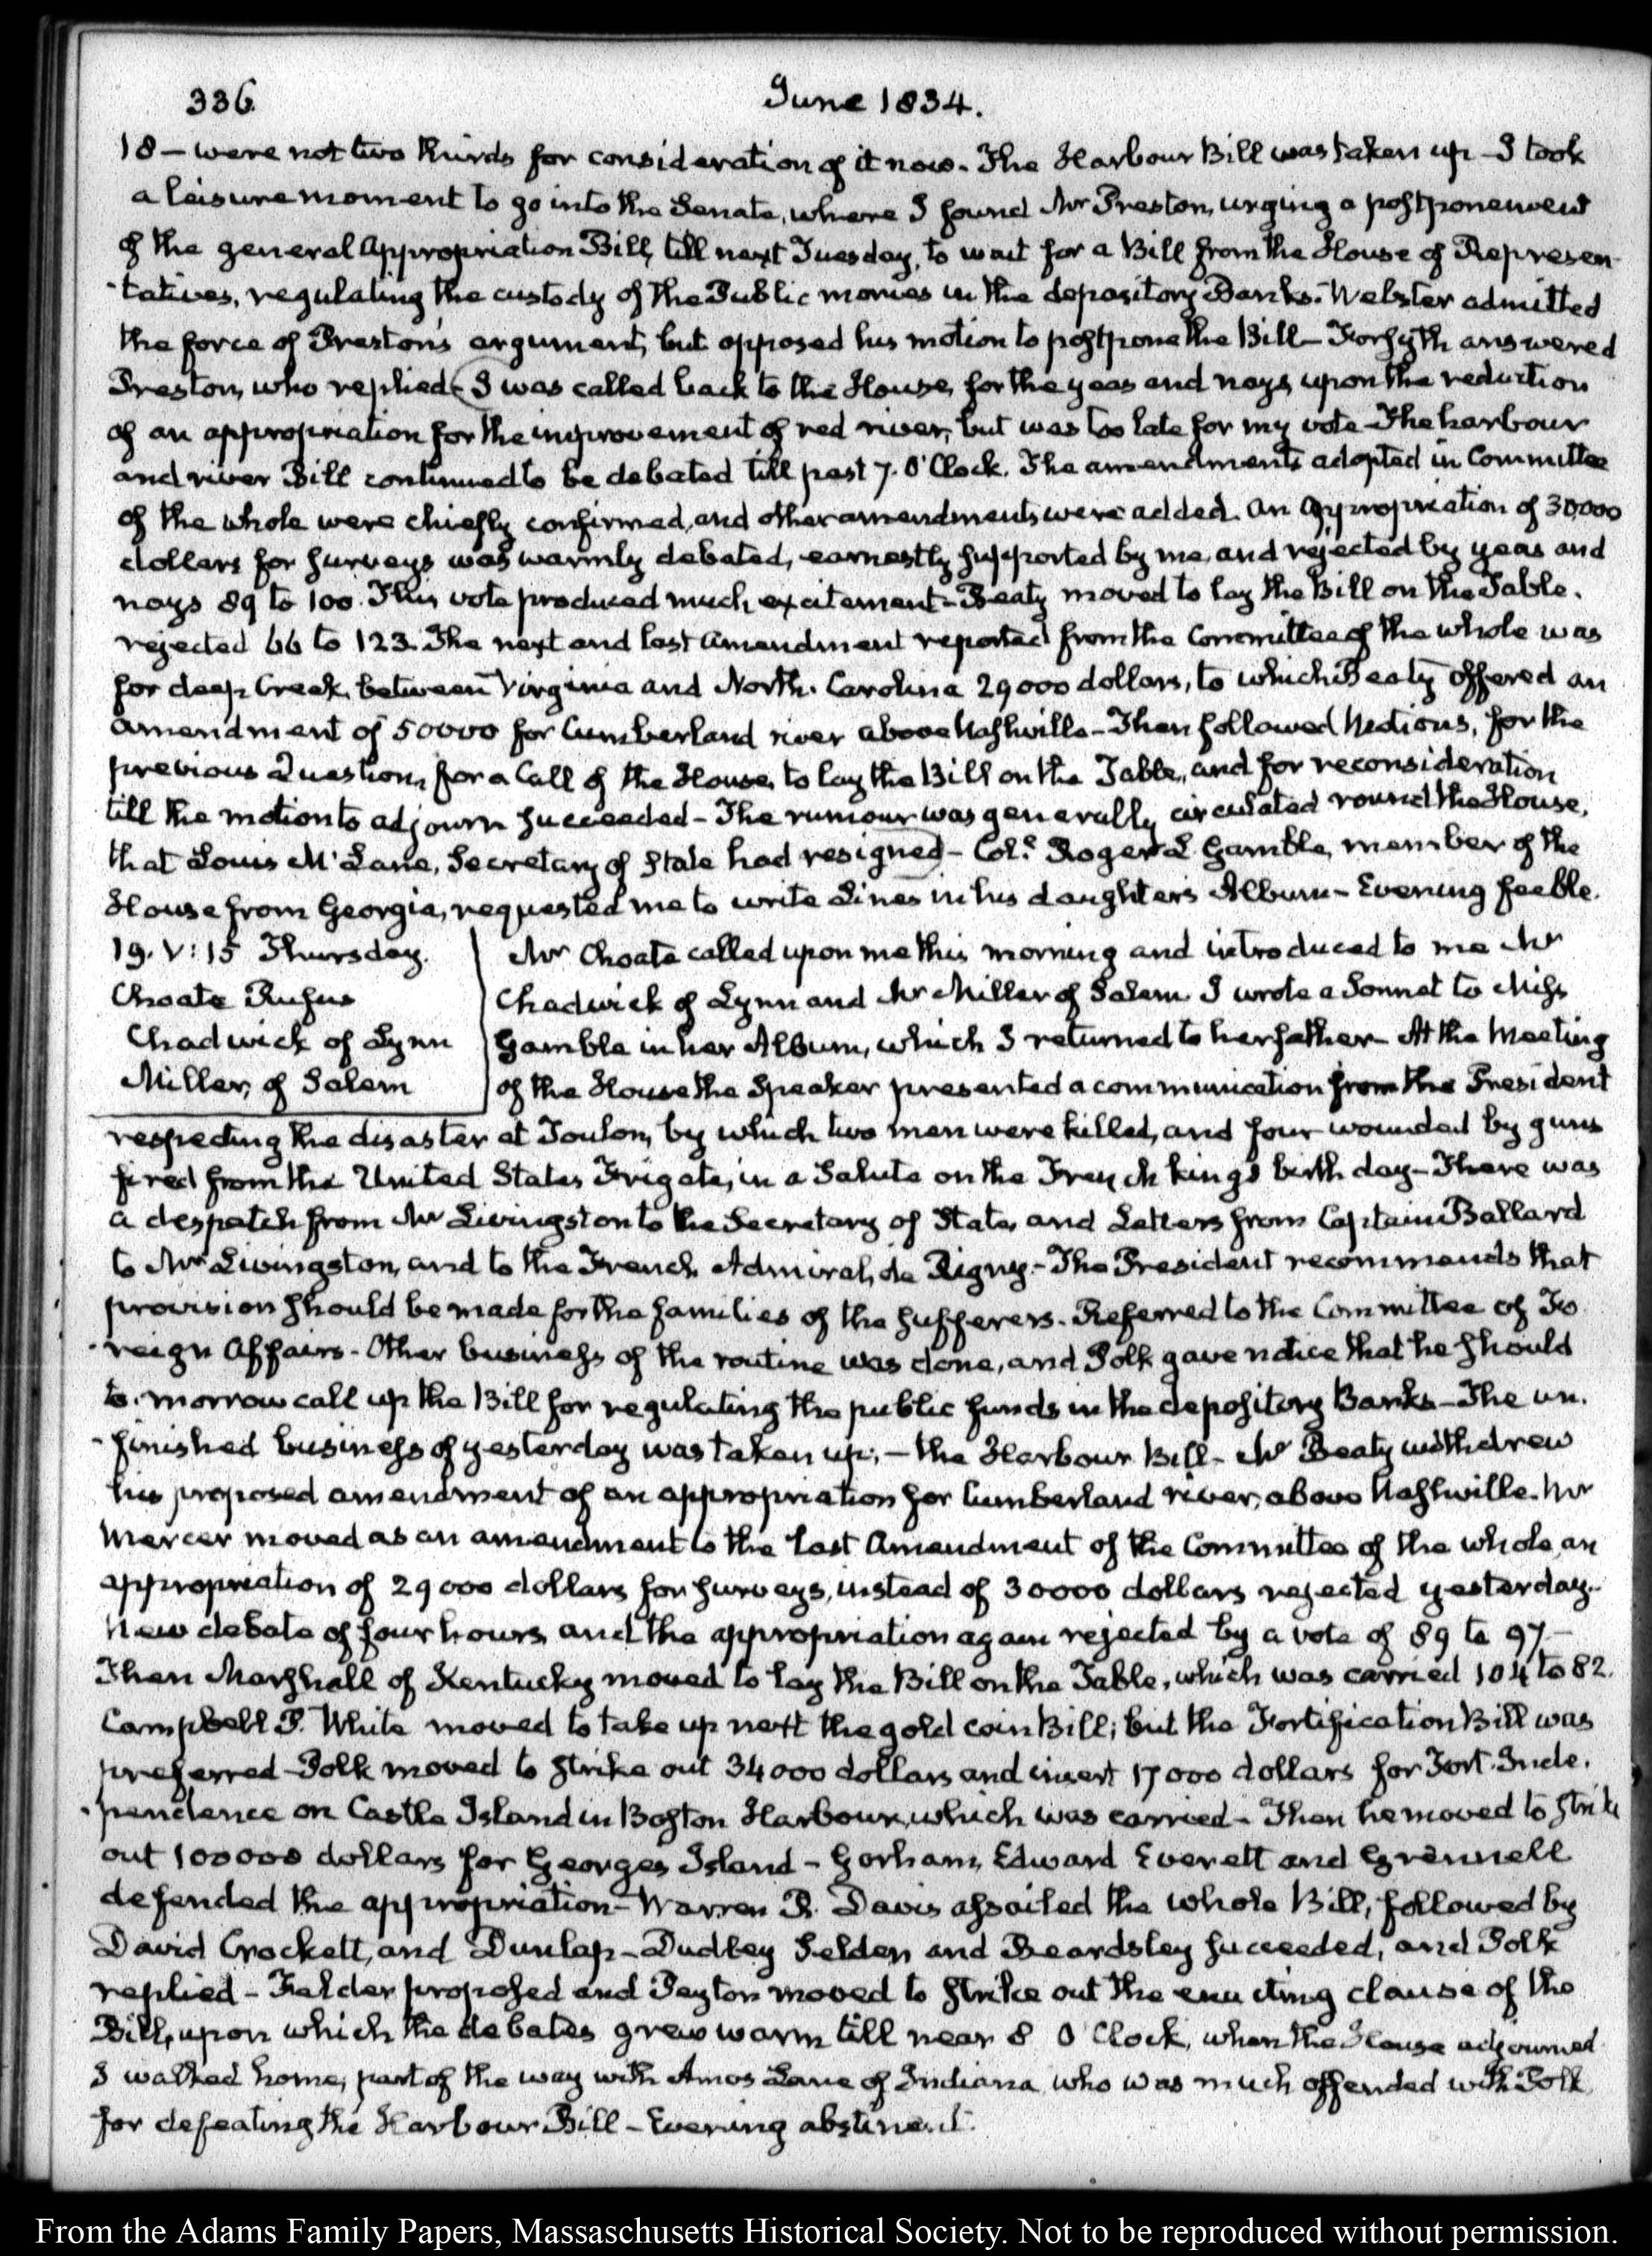 336
June 1834.
18 – were not two thirds for consideration of it now. The Harbour Bill was taken up – I took
a leisure moment to go into the Senate, where I found Mr Preston, urging a postponement
of the general Appropriation Bill, till next Tuesday, to wait for a Bill from the House of Represen-
-tatives, regulating the custody of the Public monies in the depository Banks. Webster admitted
the force of Preston's argument, but opposed his motion to postpone the Bill – Forsyth answered
Preston, who replied – I was called back to the House, for the yeas and nays, upon the reduction
of an appropriation for the improvement of red river, but was too late for my vote – The harbour
and river Bill continued to be debated till past 7. O'Clock. The amendments adopted in Committee
of the whole were chiefly confirmed, and other amendments were added. An Appropriation of 30,000
dollars for surveys was warmly debated, earnestly supported by me, and rejected by yeas and
nays 89 to 100. This vote produced much excitement – Beaty moved to lay the Bill on the Table.
rejected 66 to 123. The next and last amendment reported from the Committee of the whole was
for deep Creek, between Virginia and North. Carolina 29000 dollars, to which Beaty offered an
amendment of 50000 for Cumberland river above Nashville – Then followed Motions, for the
previous Question, for a Call of the House, to lay the Bill on the Table, and for reconsideration
till the motion to adjourn succeeded – The rumour was generally circulated round the House,
that Louis McLane, Secretary of State had resigned – Col.l Roger L Gamble, member of the
House from Georgia, requested me to write Lines in his daughter's Album – Evening feeble.
19. V:15 Thursday.
Choate Rufus
Chadwick of Lynn
Miller, of Salem
Mr Choate called upon me this morning and introduced to me Mr
Chadwick of Lynn and Mr Miller of Salem. I wrote a Sonnet to Miss
Gamble in her Album, which I returned to her father – At the Meeting
of the House the Speaker presented a communication from the President
respecting the disaster at Toulon, by which two men were killed, and four wounded by guns
fired from the United States Frigate, in a Salute on the French king's birth day – There was
a despatch from Mr Livingston to the Secretary of State, and Letters from Captain Ballard
to Mr Livingston, and to the French Admiral, de Rigny. – The President recommends that
provision should be made for the families of the sufferers. Referred to the Committee of Fo-
-reign Affairs – Other business of the routine was done, and Polk gave notice that he should
to-morrow call up the Bill for regulating the public funds in the depository Banks – The un-
-finished business of yesterday was taken up; – the Harbour Bill – Mr Beaty withdrew
his proposed amendment of an appropriation for Cumberland river, above Nashville. Mr
Mercer moved as an amendment to the last Amendment of the Committee of the whole, an
appropriation of 29000 dollars for surveys, instead of 30000 dollars rejected yesterday.
New debate of four hours and the appropriation again rejected by a vote of 89 to 97. –
Then Marshall of Kentucky moved to lay the Bill on the Table, which was carried 104 to 82.
Campbell P. White moved to take up next the gold coin Bill; but the Fortification Bill was
preferred – Polk moved to strike out 34000 dollars and insert 17000 dollars for Fort. Inde-
-pendence on Castle Island in Boston Harbour, which was carried – Then he moved to strike
out 100000 dollars for Georges Island – Gorham, Edward Everett and Grennell
defended the appropriation – Warren R. Davis assailed the whole Bill, followed by
David Crockett, and Dunlap – Dudley Selden and Beardsley succeeded, and Polk
replied – Felder proposed and Peyton moved to strike out the enacting clause of the
Bill, upon which the debates grew warm till near 8 O'Clock, when the House adjourned.
I walked home, part of the way with Amos Lane of Indiana, who was much offended with Polk
for defeating the Harbour Bill – Evening abstinent.
From the Adams Family Papers, Massaschusetts Historical Society. Not to be reproduced without permission.